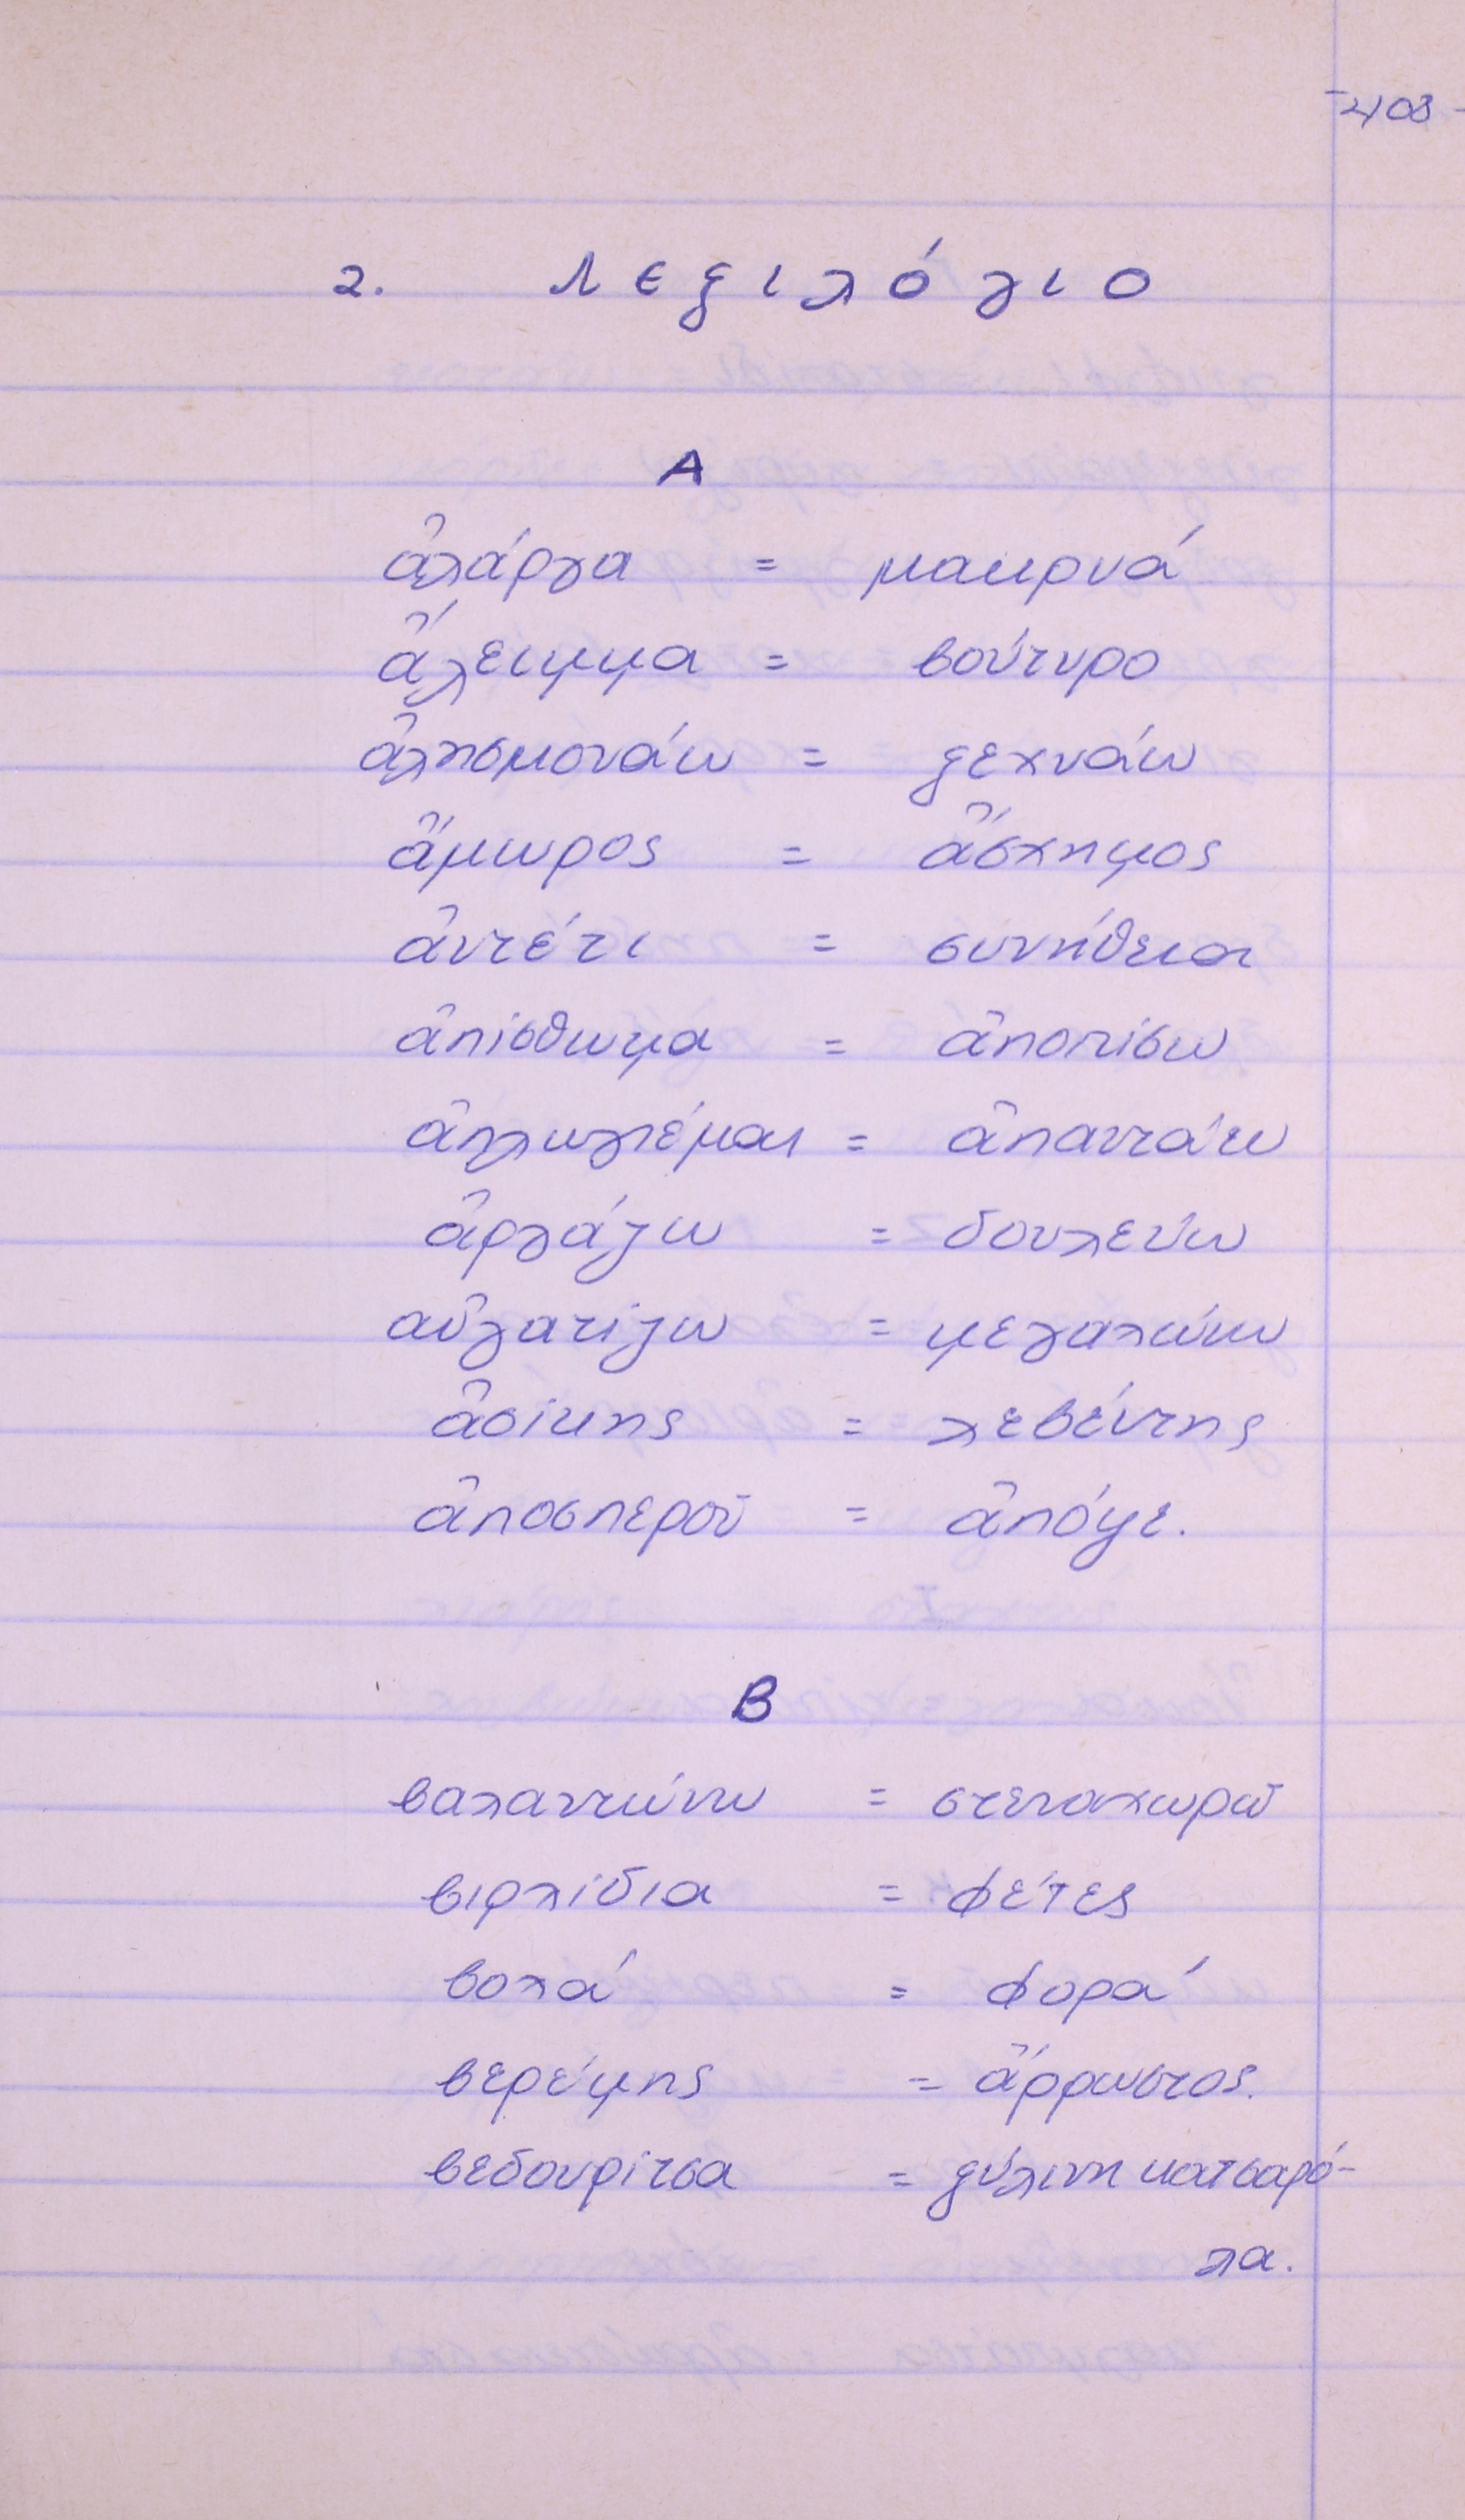 -403-
2. Λεξιλόγιο
Α
ἀλάργα = μακρυά
ἄλειμμα = βούτυρο
ἀλησμονάω = ξεχνάω
ἄμωρος = ἄσχημος
ἀντέτι = συνήθεια
ἀπίσθωμα = ἀποπίσω
ἀπλωγιέμαι = ἀπαντάω
ἀργάζω = δουλεύω
αὐγατίζω = μεγαλώνω
ἀσίκης = λεβέντης
ἀποσπεροῦ = ἀπόψε.
Β
βαλαντώνω = στενοχωρῶ
βιρλίδια = φέτες
βολά = φορά
βερέμης = ἄρρωστος.
βεδουρίτσα = ξύλινη κατσαρό-
λα.